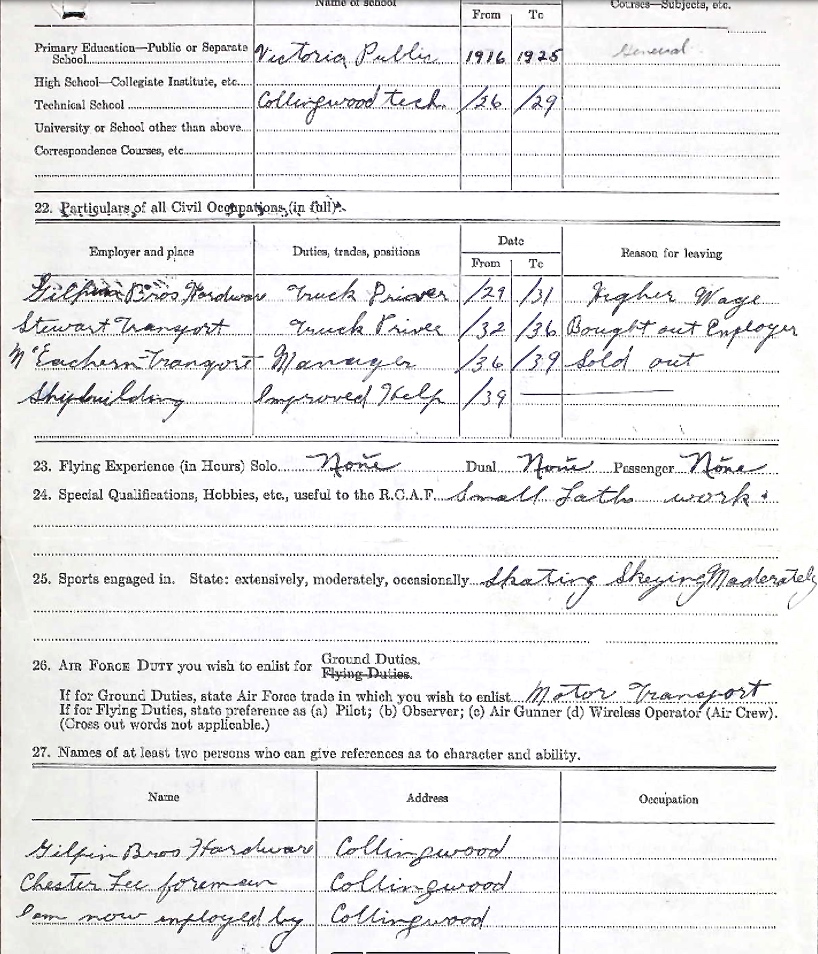 Name of school From To Courses—Subjects, etc.
Primary Education—Public or Separate
School Victoria Public 1916 1925 General
High School—Collegiate Institute, etc.
Technical School Collingwood tech. /26 /29
University or School other than above
Correspondence Courses, etc.
22. Particulars of all Civil Occupations (in full).
Employer and place Duties, trades, positions Date Reason for leaving
From To
Gilpin Bros Hardware Truck Driver /29 /31 Higher Wage
Stewart Transport Truck Driver /32 /36 Bought out Employer
McEachern Tranport Manager /36 /39 Sold out
Shipbuilding Improved Help /39
23. Flying Experience (in Hours) Solo None Dual None Passenger None
24. Special Qualifications, Hobbies, etc., useful to the R.C.A.F. Small Lath work.
25. Sports engaged in. State: extensively, moderately, occasionally Skating Skeying Maderately
26. AIR FORCE DUTY you wish to enlist for Ground Duties.
Flying Duties.
If for Ground Duties, state Air Force trade in which you wish to enlist Motor Transport
If for Flying Duties, state preference as (a) Pilot; (b) Observer; (c) Air Gunner (d) Wireless Operator (Air Crew).
(Cross out words not applicable.)
27. Names of at least two persons who can give references as to character and ability.
Name Address Occupation
Gilpin Bros Hardware Collingwood
Chester Lee foreman Collingwood
I am now employed by Collingwood